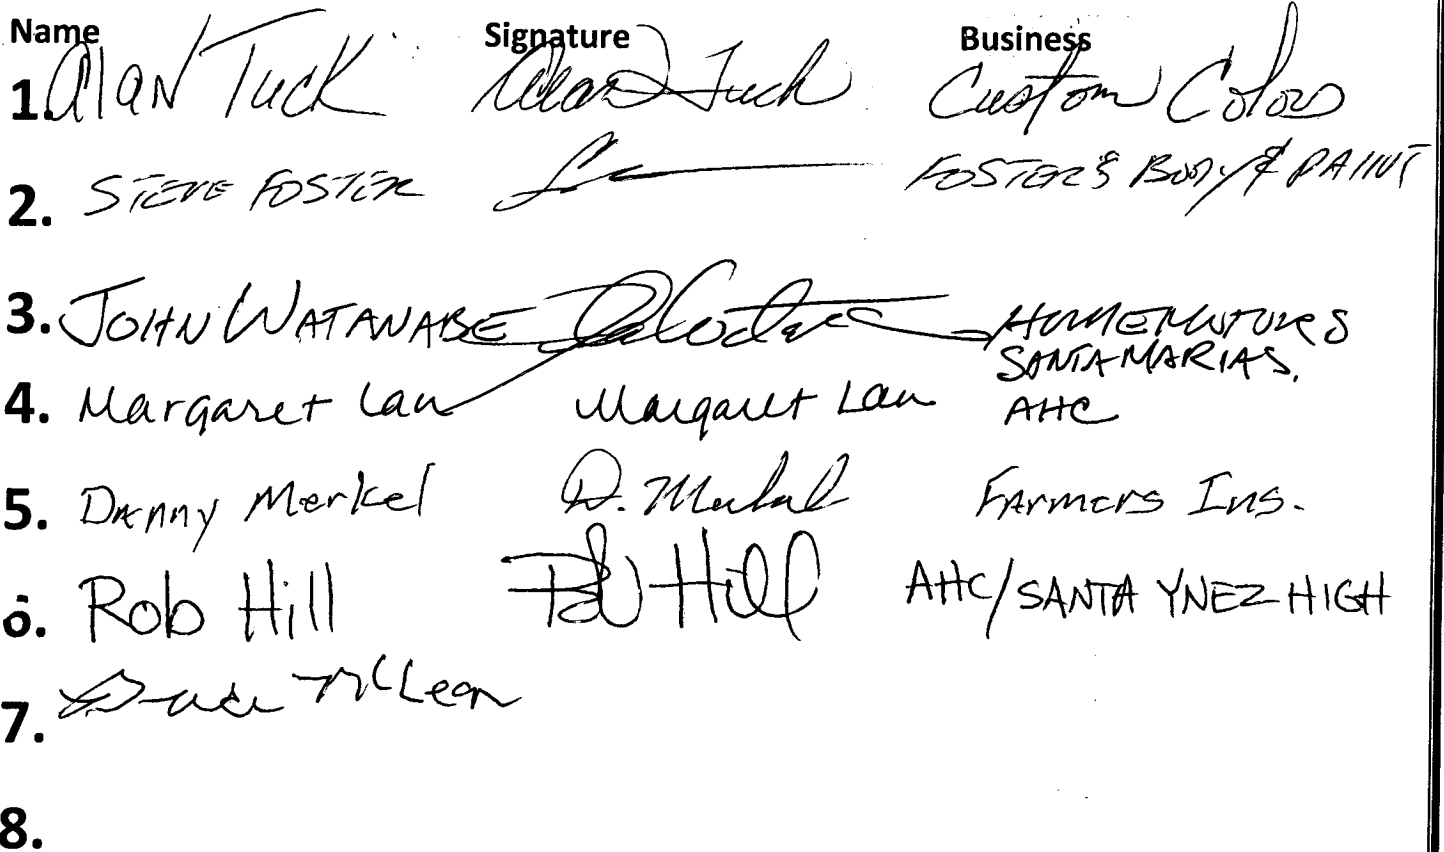 Name Signature Business
1. Alan Tuck Alan Tuck Custom Colors
2. STEVE FOSTER FOSTER'S BODY & PAINT
3. JOHN WATANABE HOME MOTORS
SANTA MARIA
4. Margaret Lau Margaret Lau AHC
5. Danny Merkel D. Merkel Farmers Ins.
6. Rob Hill Rob Hill AHC/SANTA YNEZ HIGH
7. McLean
8.